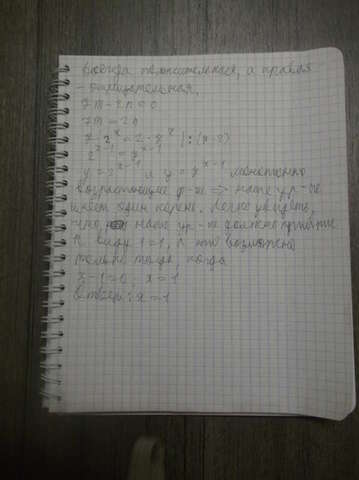 всегда положительная, а правая
- отрицательная.
7m - 2n = 0
7m = 2n
7 · 2ˣ = 2 · 7ˣ | : (7·2)
2ˣ⁻¹ = 7ˣ⁻¹
y = 2ˣ⁻¹ и y = 7ˣ⁻¹ монотонно
возрастающие ф-и => наше ур-ие
имеет один корень. Легко увидеть,
что наше ур-ие должно прийти
к виду 1 = 1, а это возможно
только тогда, когда
x - 1 = 0 x = 1
Ответ: x = 1